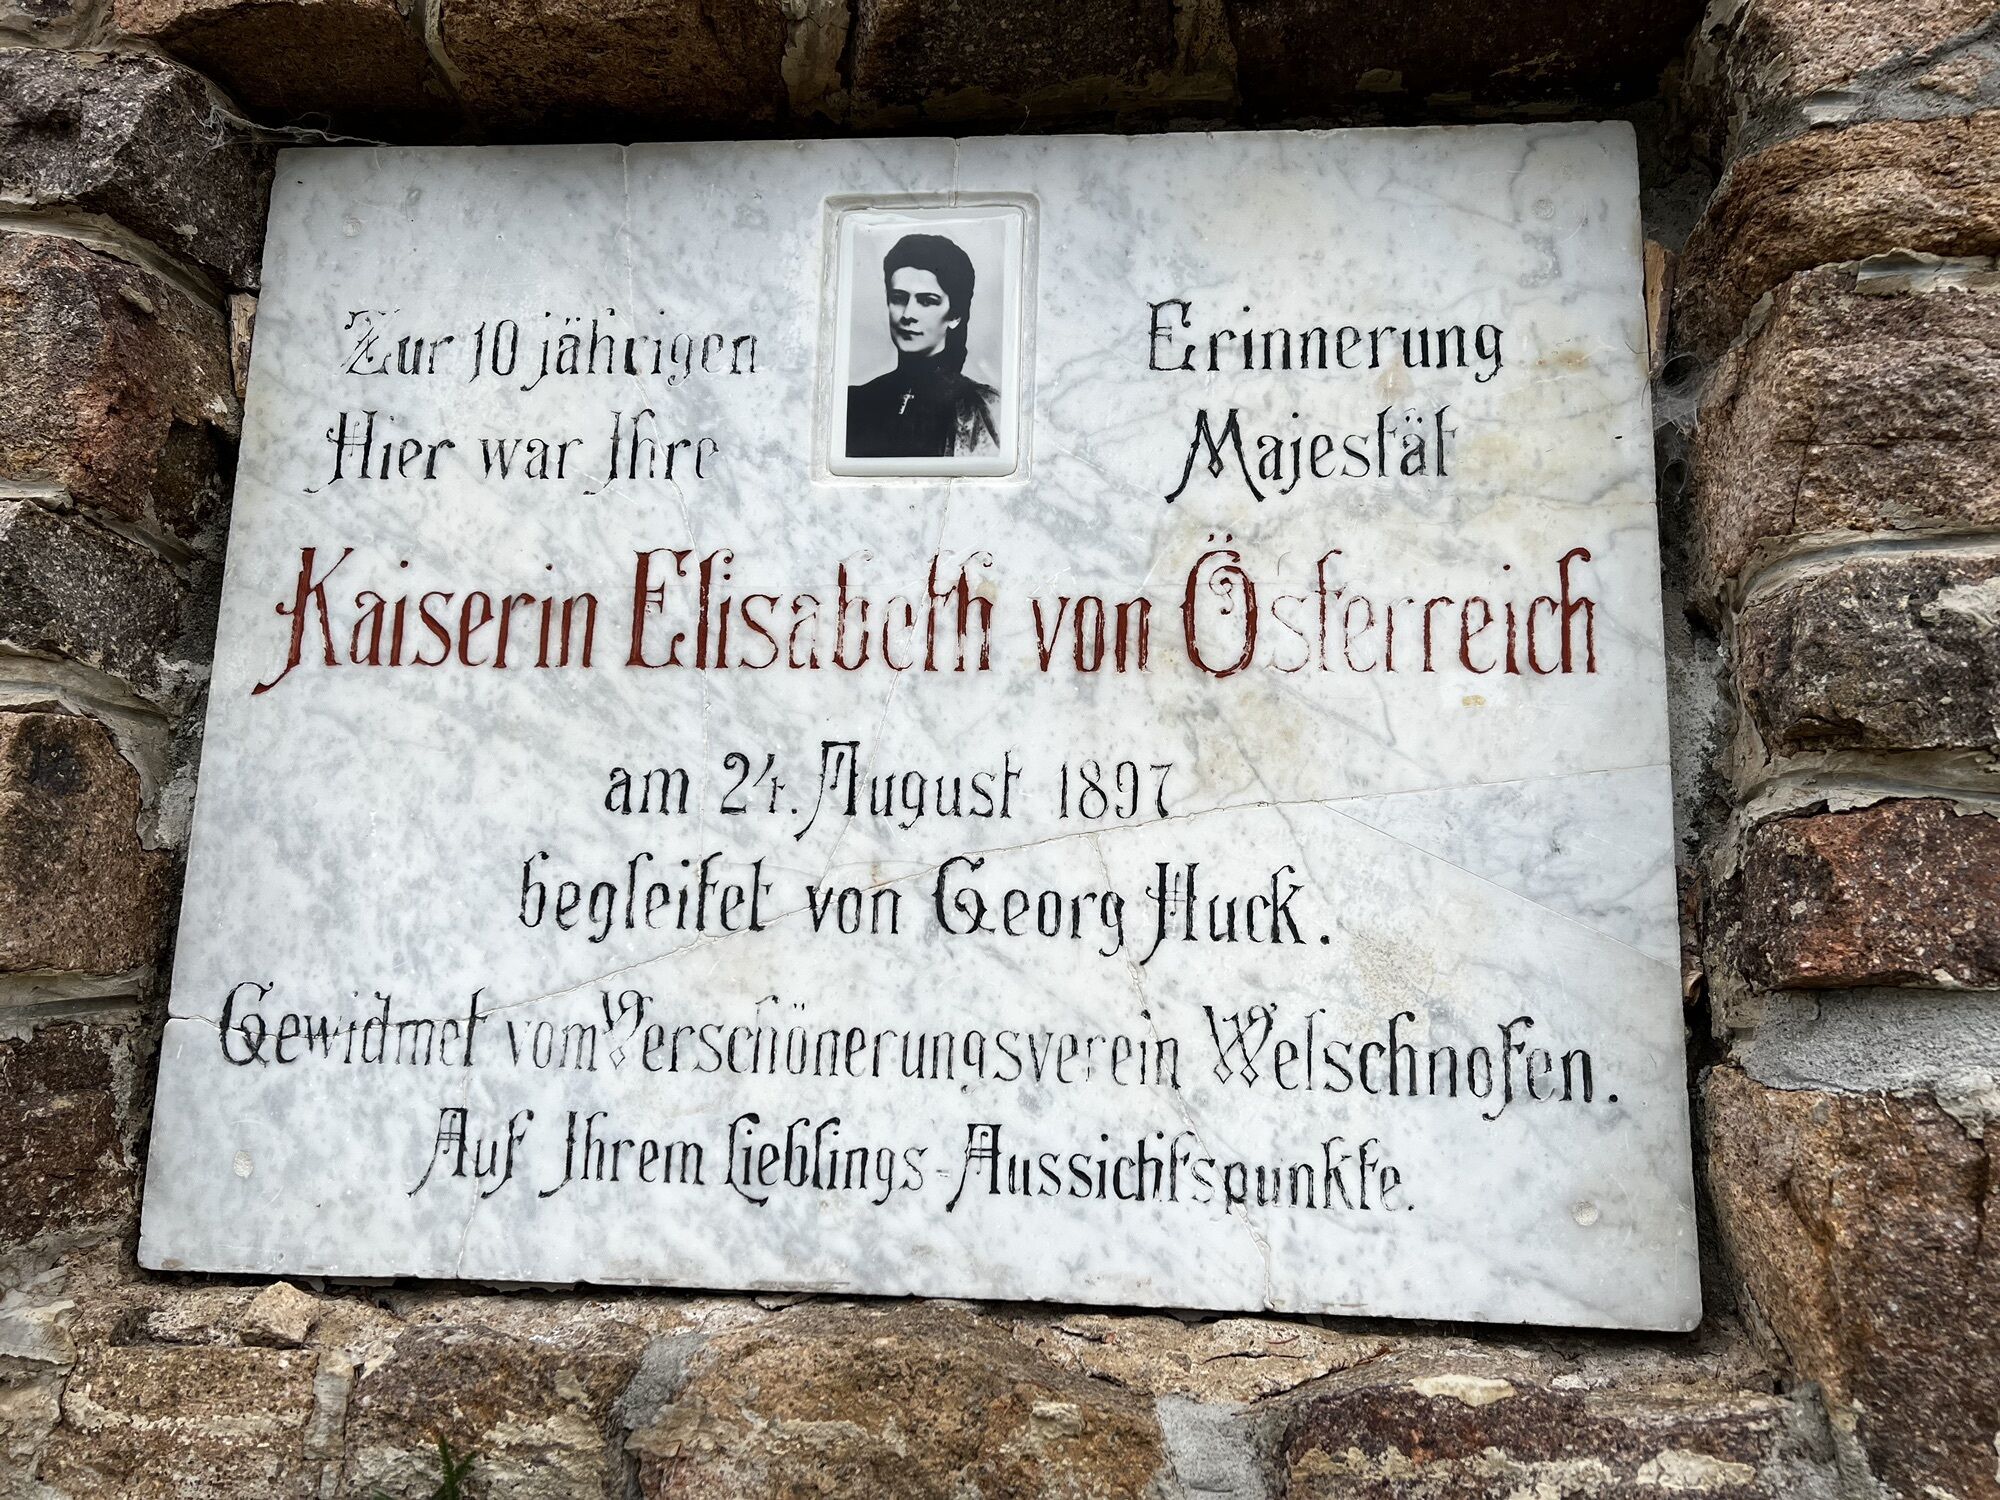 Zur 10 jährigen Erinnerung
Hier war Ihre Majestät
Kaiserin Elisabeth von Österreich
am 24. August 1897
begleitet von Georg Huck.
Gewidmet vom Verschönerungsverein Welschnofen.
Auf Ihrem Lieblings-Aussichtspunkte.